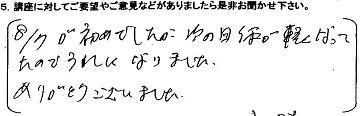 5. 講座に対してご要望やご意見などがありましたら是非お聞かせ下さい。
8/7が初めてでしたが 次の日 体が軽くなって
たのでうれしくなりました。
ありがとうございました。